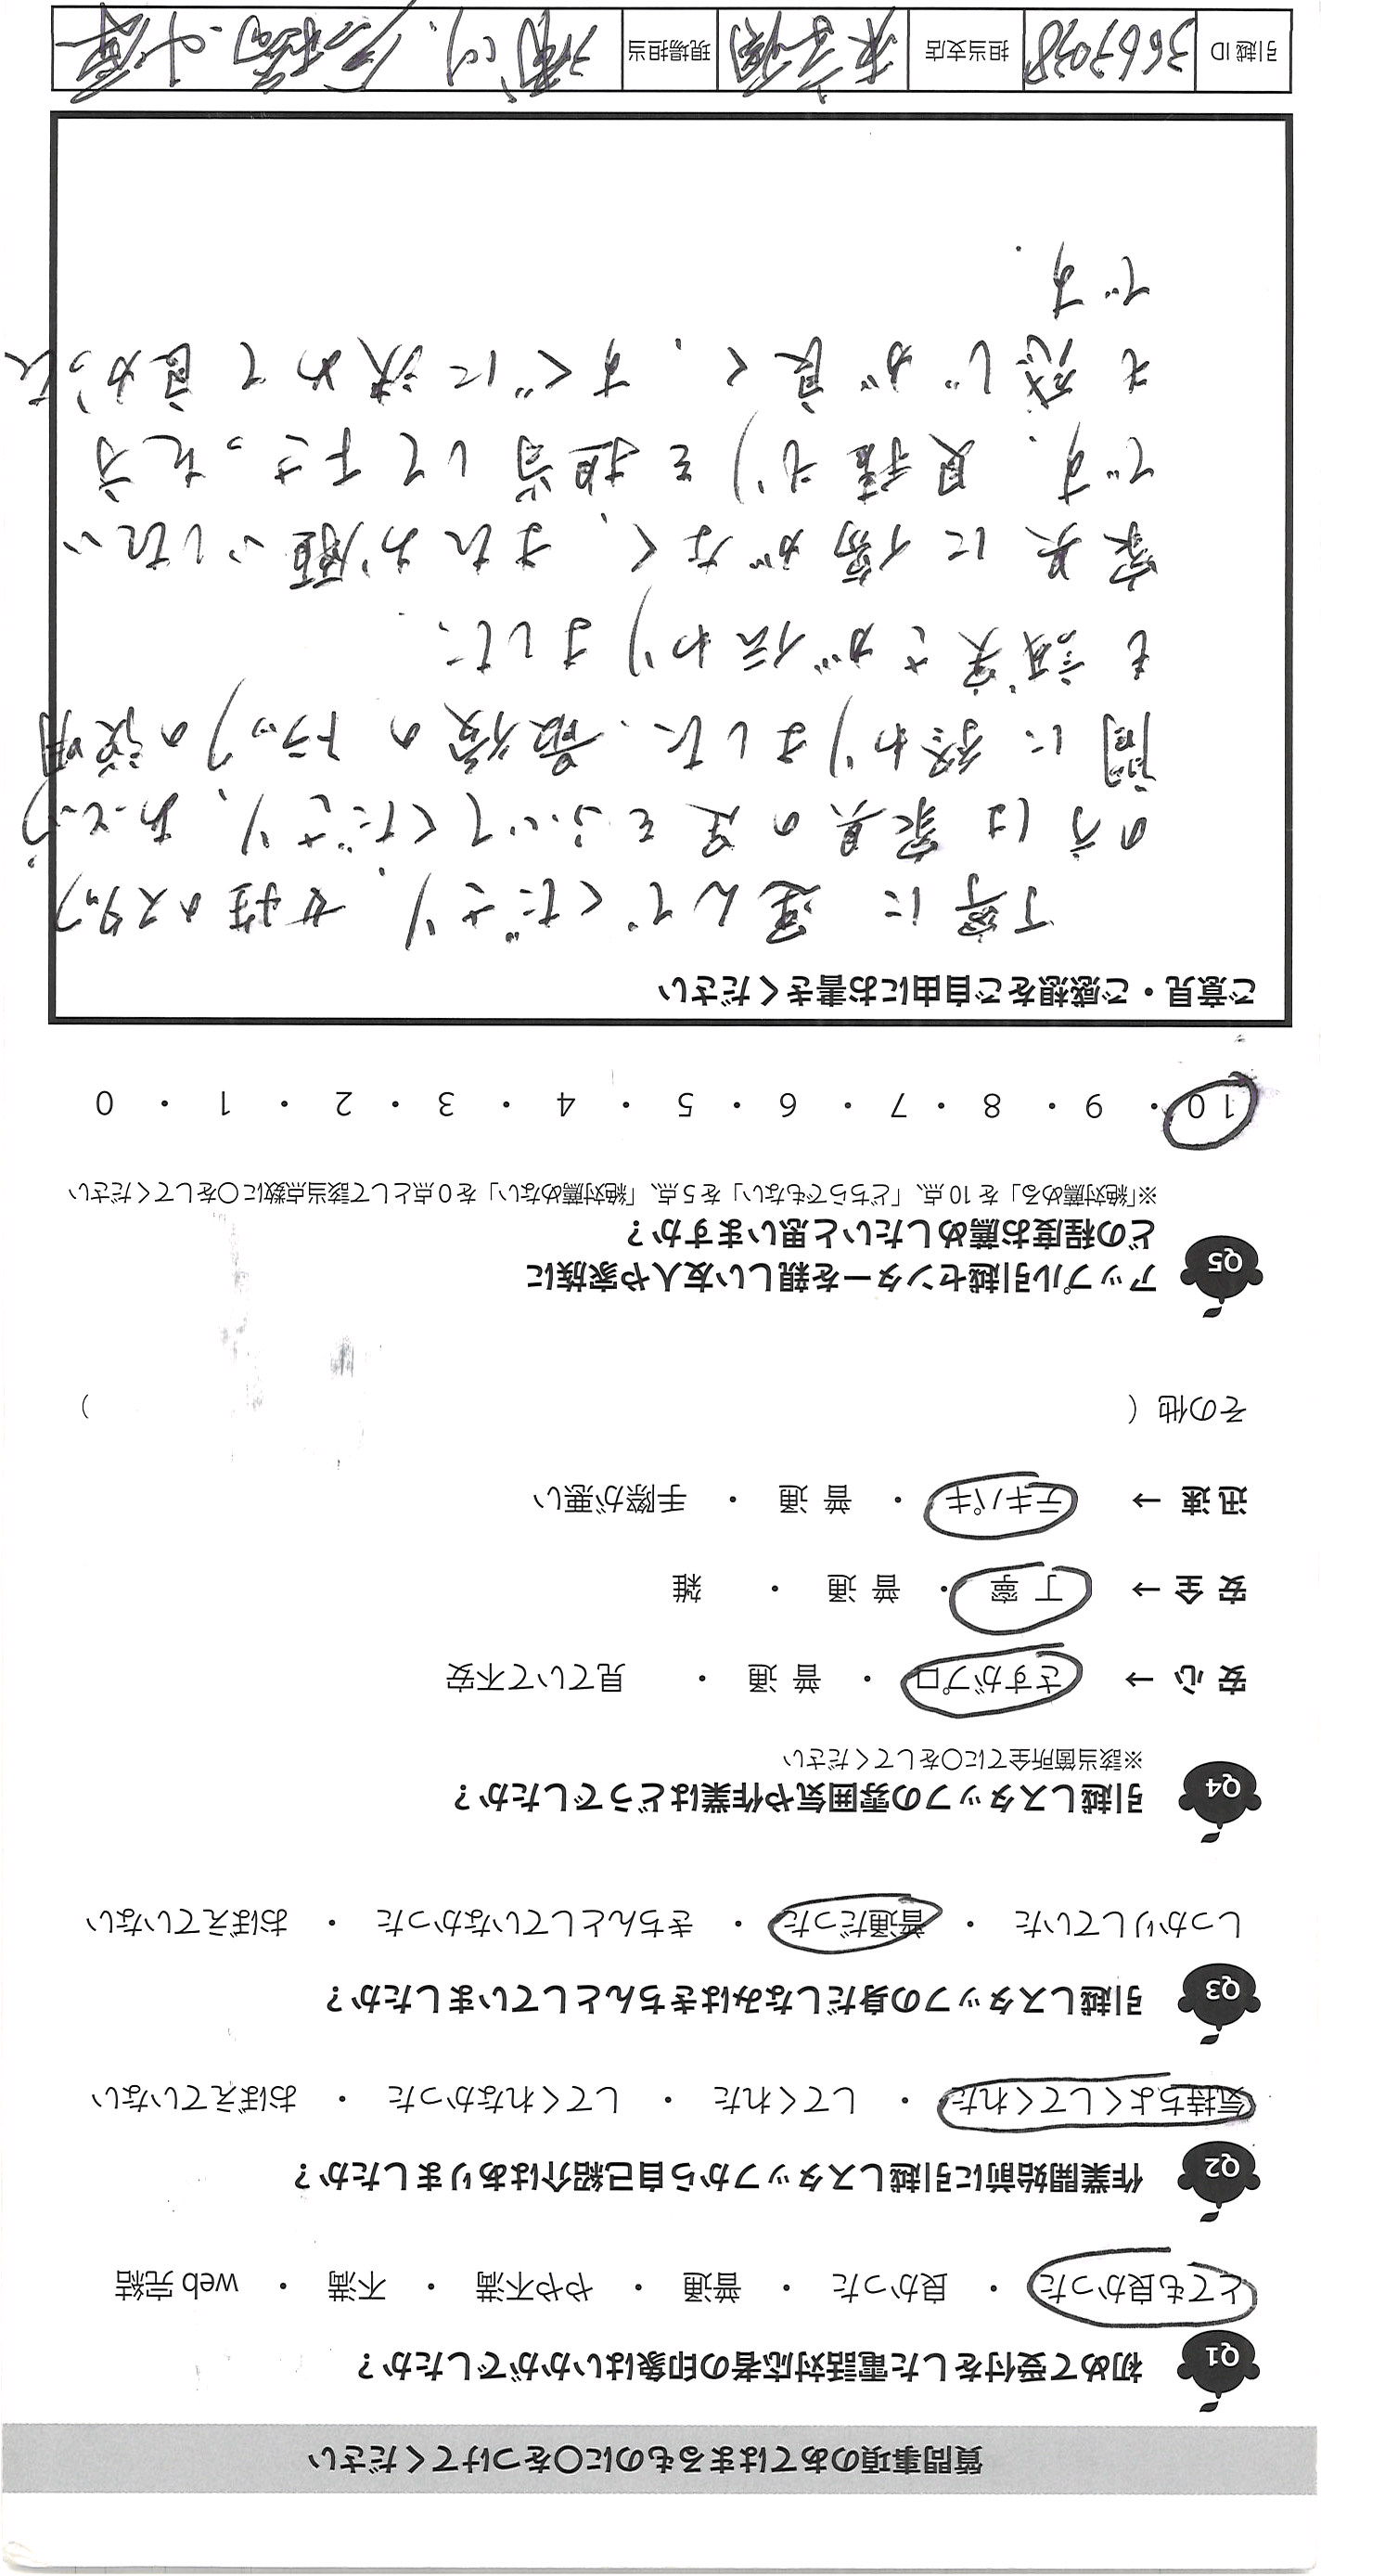 質問事項のあてはまるものに〇をつけてください
Q1 初めて受付をした電話対応者の印象はいかがでしたか？
とても良かった ・ 良かった ・ 普通 ・ やや不満 ・ 不満 ・ web 完結
Q2 作業開始前に引越しスタッフから自己紹介はありましたか？
気持ちよくしてくれた ・ してくれた ・ してくれなかった ・ おぼえていない
Q3 引越しスタッフの身だしなみはきちんとしていましたか？
しっかりしていた ・ 普通だった ・ きちんとしていなかった ・ おぼえていない
Q4 引越しスタッフの雰囲気や作業はどうでしたか？
※該当箇所全てに〇をしてください
安 心 → さすがプロ ・ 普 通 ・ 見ていて不安
安 全 → 丁 寧 ・ 普 通 ・ 雑
迅 速 → テキパキ ・ 普 通 ・ 手際が悪い
その他（ ）
Q5 アップル引越センターを親しい友人や家族に
どの程度お薦めしたいと思いますか？
※「絶対薦める」を 10 点、「どちらでもない」を 5 点、「絶対薦めない」を 0 点として該当点数に〇をしてください
10 ・ 9 ・ 8 ・ 7 ・ 6 ・ 5 ・ 4 ・ 3 ・ 2 ・ 1 ・ 0
ご意見・ご感想をご自由にお書きください
丁寧に運んでくださり、女性のスタッフ
の方は家具の足をふいてくださり、あっという
間に終わりました、最後のトラックの説明
も誠実さが伝わりました、
家具に傷がなく、またお願いしたい
です、見積もりを担当して下さった方
も感じが良く、すぐに決めて良かった
です.
引越 ID 3667038 担当支店 現場担当